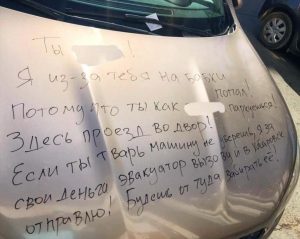 Ты !
Я из-за тебя на бабки
попал!
Потому что ты как паркуешся!
Здесь проезд во двор!
Если ты тварь машину не уберешь, я за
свои деньги эвакуатор вызову и в
отправлю! Будешь от туда забирать её!